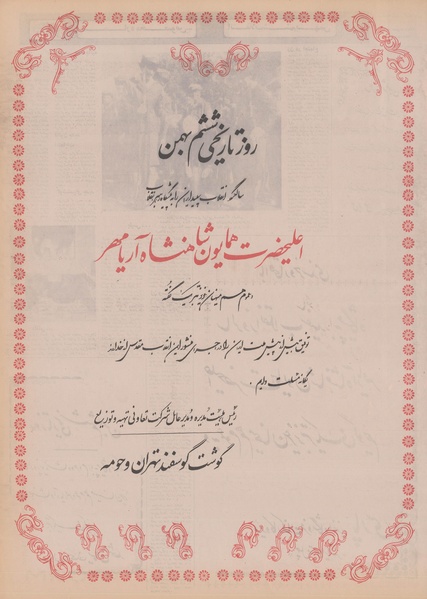 روز تاریخی ششم بهمن
سالگرد انقلاب سپید ایران را به پیشگاه رهبر انقلاب
اعلیحضرت همایون شاهنشاه آریامهر
و عموم هم میهنان عزیز تبریک گفته
توفیق بیش از پیش ملت ایران را در اجرای منشور این انقلاب مقدس از خداوند
یگانه مسئلت داریم .
رئیس هیئت مدیره و مدیر عامل شرکت تعاونی تهیه و توزیع
گوشت گوسفند تهران و حومه